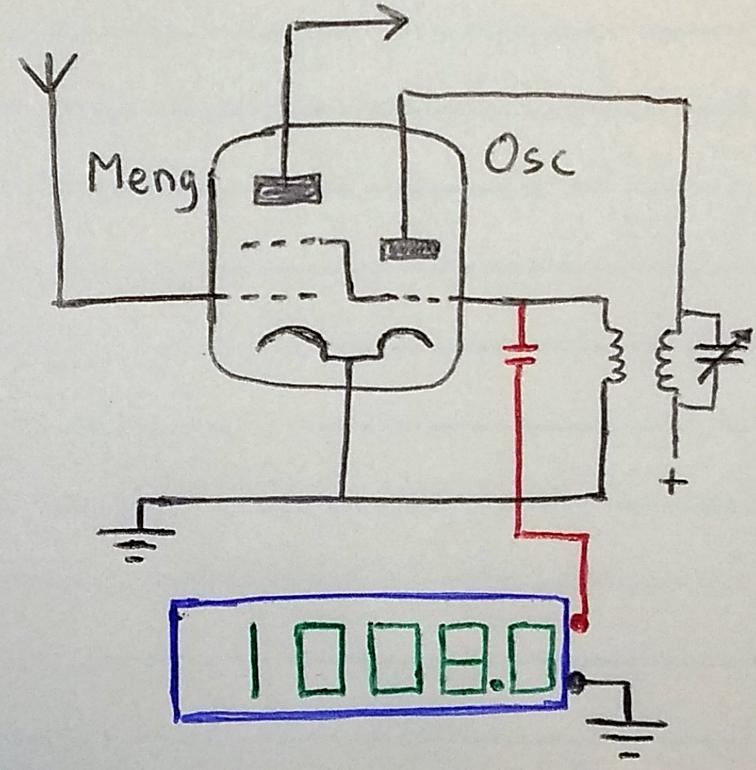 Meng
Osc
+
1008.0